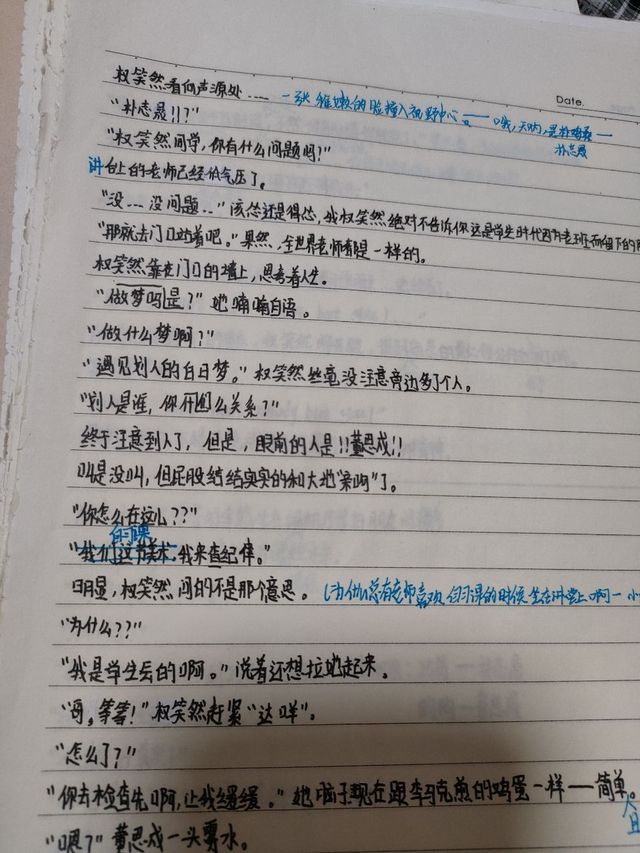 Date.
权笑然看向声源处…… 一张稚嫩的脸撞入视野中心——哦,天呐,是朴鸡蛋——
朴志晟
"朴志晟!!?"
"权笑然同学,你有什么问题吗?"
讲台上的老师已经低气压了。
"没……没问题…"该怂还是得怂,我权笑然绝对不告诉你这是学生时代因为老班而留下的
"那就去门口站着吧。"果然,全世界老师都是一样的。
权笑然靠在门口的墙上,思考着人生。
"做梦吗是?"她喃喃自语。
"做什么梦啊?"
"遇见别人的白日梦。"权笑然丝毫没注意旁边多了个人。
"别人是谁,你什么关系?"
终于注意到人了,但是,眼前的人是!!董思成!!
叫是没叫,但屁股结结实实的和大地"亲吻"了。
"你怎么在这儿??"
自习课
"我们这节美术,我来查纪律。"
明显,权笑然问的不是那个意思。(为什么总有老师喜欢自习课的时候坐在讲台上啊—小
"为什么??"
"我是学生会的啊。"说着还想拉她起来。
"哥,等等!"权笑然赶紧"达咩"。
"怎么了?"
"你去检查先啊,让我缓缓。"她脑子现在跟李马克煎的鸡蛋一样——简单。
"嗯?"董思成一头雾水。